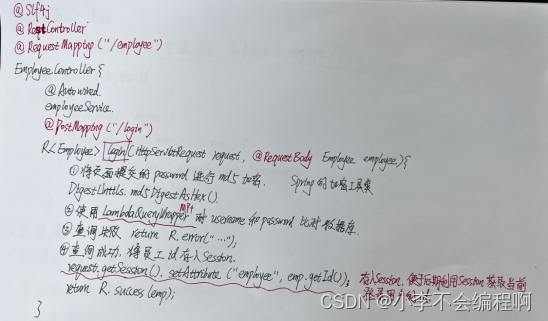 @Slf4j
@RestController
@RequestMapping ("/employee")
EmployeeController {
@Autowired.
employeeService.
@PostMapping ("/login")
R<Employee> login (HttpServletRequest request, @RequestBody Employee employee) {
①将页面提交的 password 进行 md5 加密. Spring的加密工具类
DigestUtils. md5DigestAsHex().
②使用 LambdaQueryWrapper 对 username 和 password 比对数据库.
③查询失败 return R.error("…");
④查询成功, 将员工id 存入Session.
request.getSession(). setAttribute ("employee", emp.getId()); 存入Session, 便于后期利用Session 获取当前
return R. success (emp);
}
CSDN @小李不会编程啊